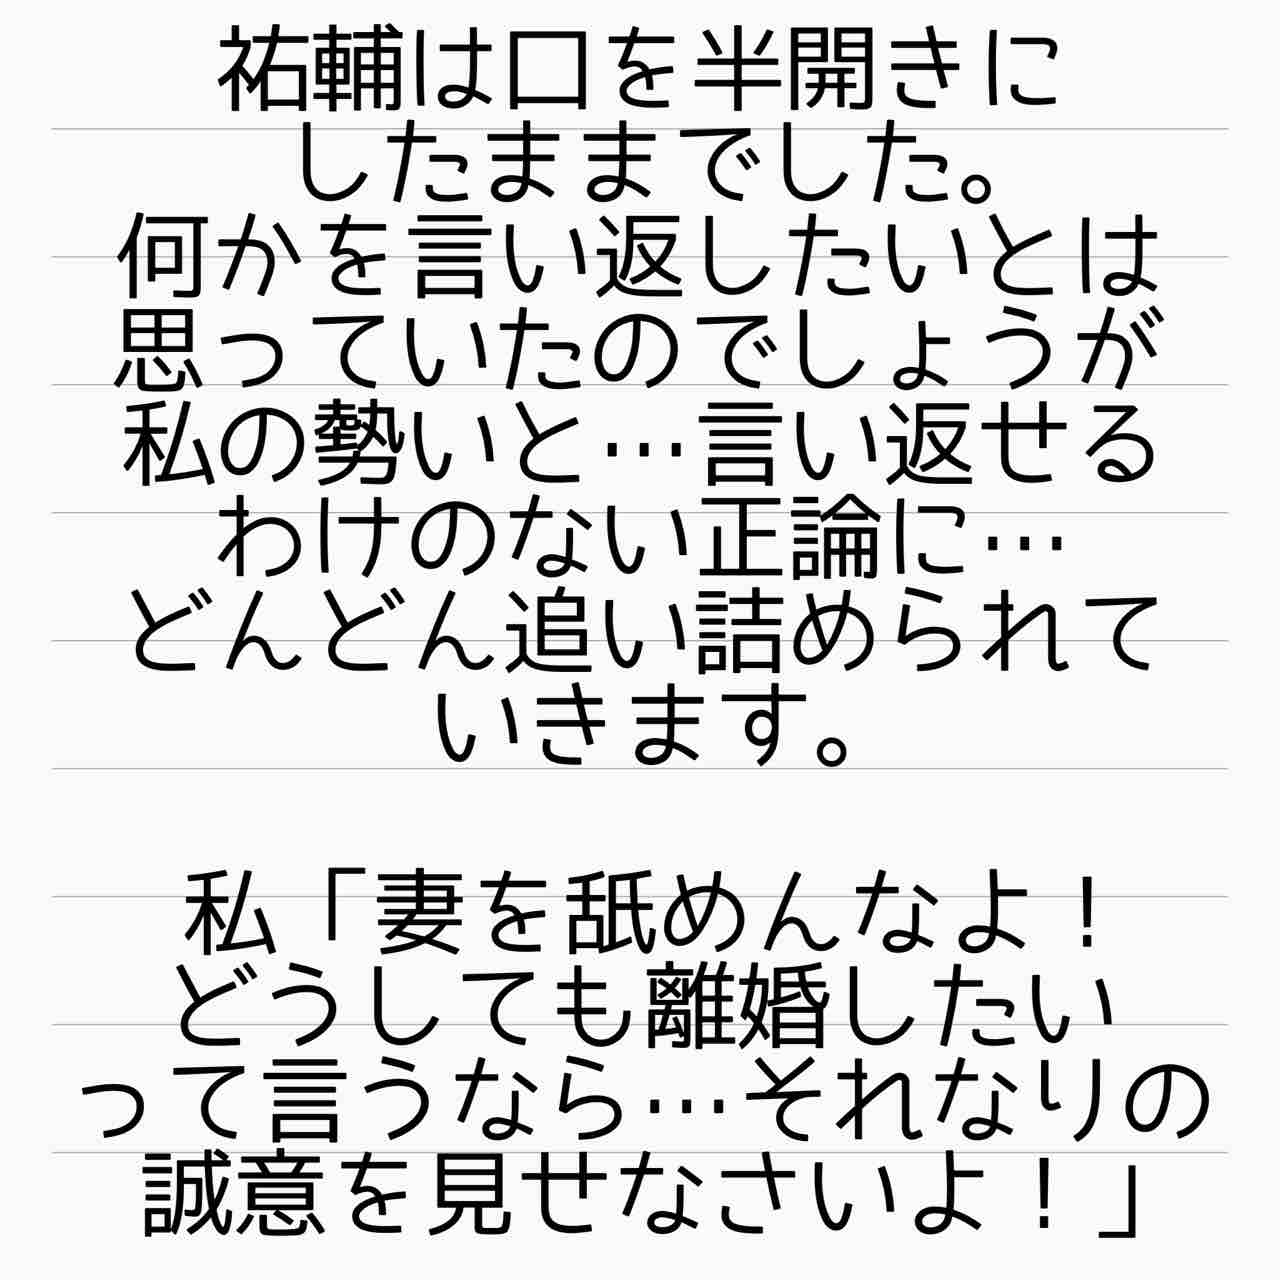 祐輔は口を半開きに
したままでした。
何かを言い返したいとは
思っていたのでしょうが
私の勢いと…言い返せる
わけのない正論に…
どんどん追い詰められて
いきます。
私「妻を舐めんなよ！
どうしても離婚したい
って言うなら…それなりの
誠意を見せなさいよ！」